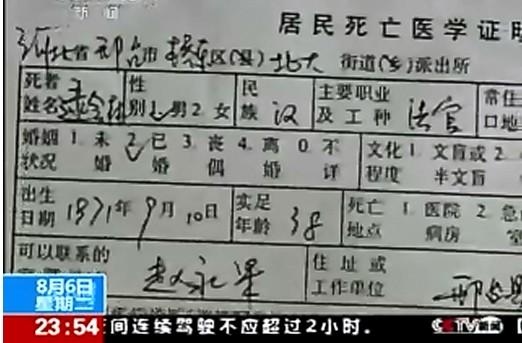 新闻
居民死亡医学证明
河北省邢台市桥东区(县)北大街道(乡)派出所
死者姓名 性别 1男2女 民族 汉 主要职业及工种 法官 常住户口地
婚姻状况 1.未婚 2.已婚 3.丧偶 4.离婚 0.不详 文化程度 1.文盲或半文盲 2.
出生日期 1971年9月10日 实足年龄 38 死亡地点 1.医院病房 2.急
可以联系的 赵永 住址或工作单位 邢台
8月6日
星期二
23:54 间连续驾驶不应超过2小时.
CCTV新闻